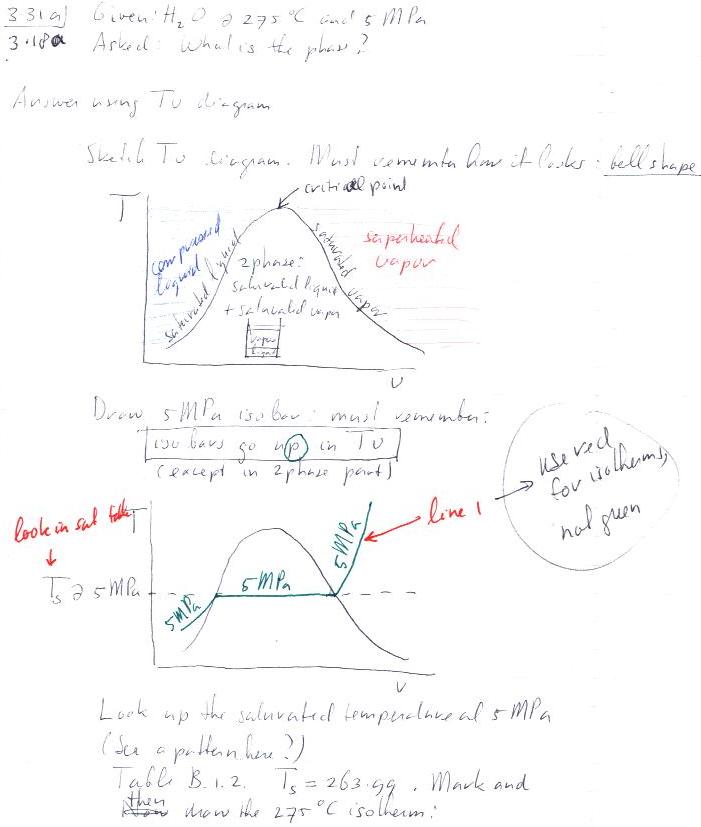 3.31a) Given: H2O @ 275°C and 5 MPa
3.18a Asked: What is the phase?
Answer using Tv diagram
Sketch Tv diagram. Must remember how it looks: bell shape
critical point
T
compressed
liquid
saturated liquid
2 phase:
saturated liquid
+ saturated vapor
vapor
liquid
saturated vapor
superheated
vapor
v
Draw 5 MPa isobar: must remember:
isobars go up in Tv
(except in 2 phase part)
use red
for isotherms,
not green
line 1
look in sat table
T
Ts @ 5 MPa
5 MPa
5 MPa
5 MPa
v
Look up the saturated temperature at 5 MPa
(See a pattern here?)
Table B.1.2. Ts = 263.99. Mark and
then draw the 275°C isotherm: